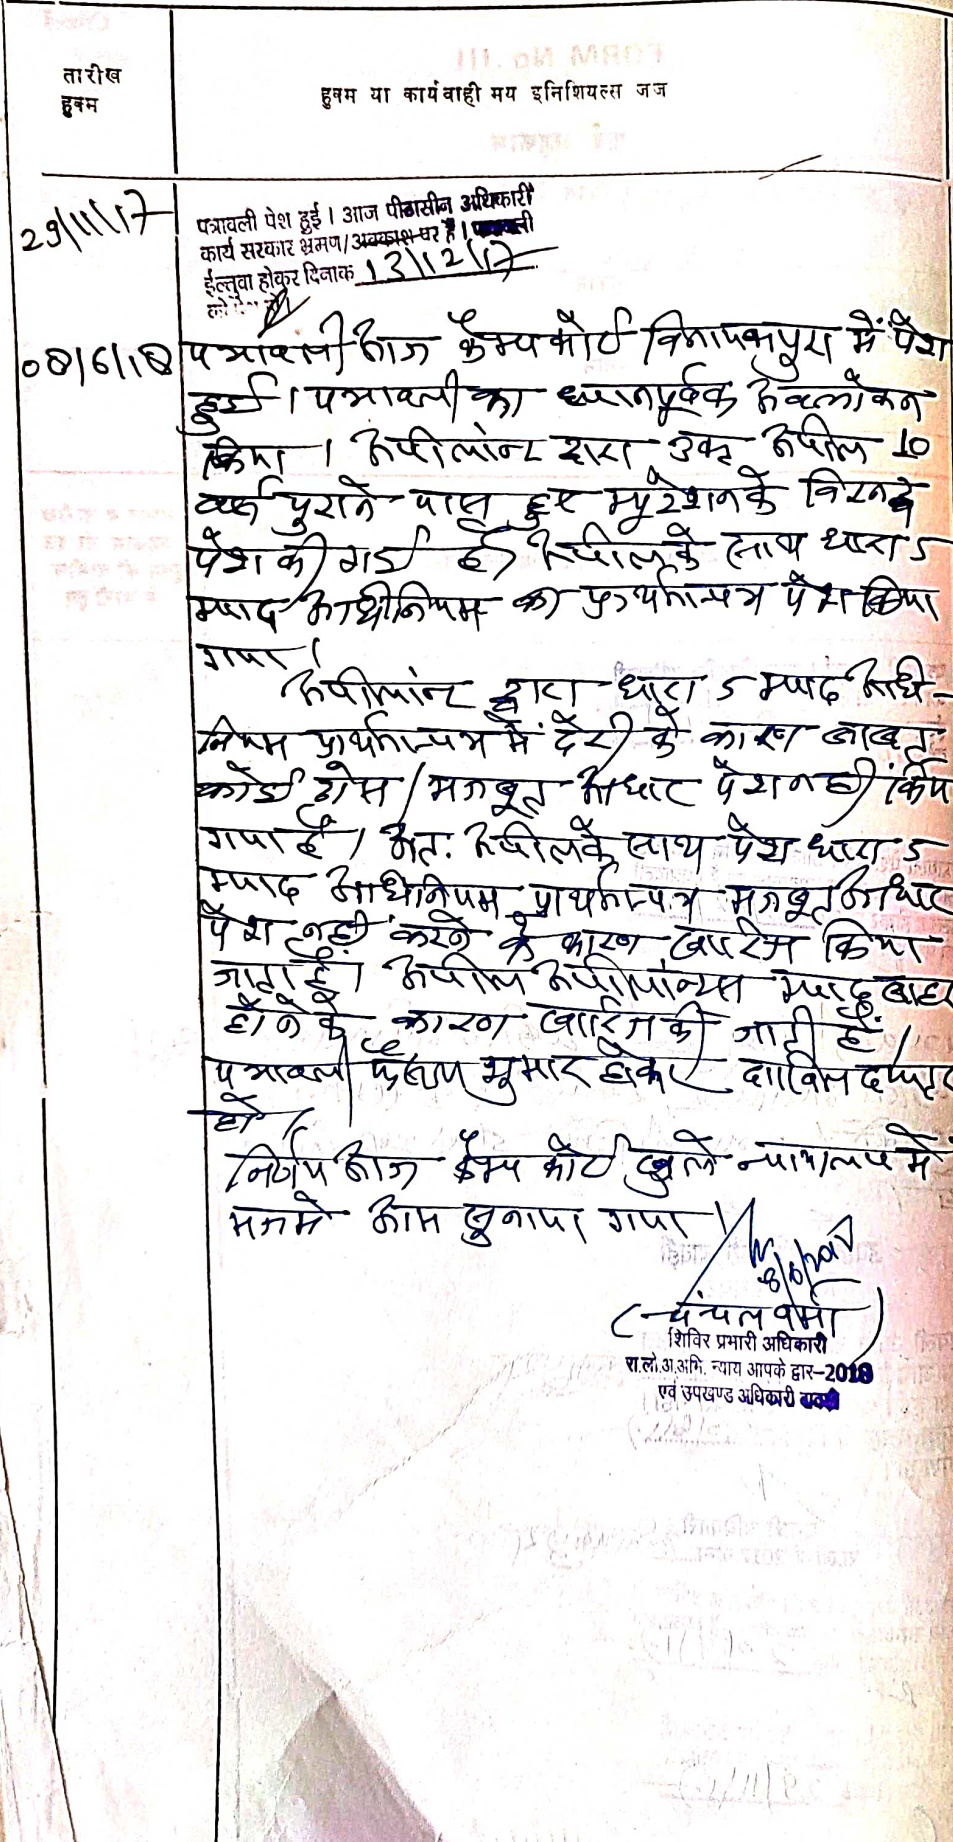 तारीख
हुक्म
हुक्म या कार्यवाही मय इनिशियल्स जज
29/11/17
पत्रावली पेश हुई । आज पीठासीन अधिकारी
कार्य सरकार भ्रमण/अवकाश पर है ।
ईल्तुवा होकर दिनाक 13/12/17
08/6/18
पत्रावली आज कैम्प कोर्ट में पेश
हुई । पत्रावली का ध्यानपूर्वक अवलोकन
किया । अपीलांट द्वारा उक्त अपील 10
वर्ष पुराने पास हुए म्यूटेशन के विरूद्ध
पेश की गई है। अपील के साथ धारा 5
म्याद अधीनियम का प्रार्थनापत्र पेश किया
गया ।
अपीलांट द्वारा धारा 5 म्याद अधि-
नियम प्रार्थनापत्र में देरी के कारण बाबत
कोई ठोस / मजबूत आधार पेश नही किया
गया है । अत: अपील के साथ पेश धारा 5
म्याद अधिनियम प्रार्थनापत्र मजबूत आधार
पेश नहीं करने के कारण खारिज किया
जाता है। अपील अपीलान्ट्स म्याद बाहर
होने के कारण खारिज की जाती है ।
पत्रावली फैसल शुमार होकर दाखिल दफ्तर
हो ।
निर्णय आज कैम्प कोर्ट खुले न्यायालय में
मजमे आम सुनाया गया ।
(चंचल वर्मा)
शिविर प्रभारी अधिकारी
रा.लो.अ.अभि. न्याय आपके द्वार-2018
एवं उपखण्ड अधिकारी